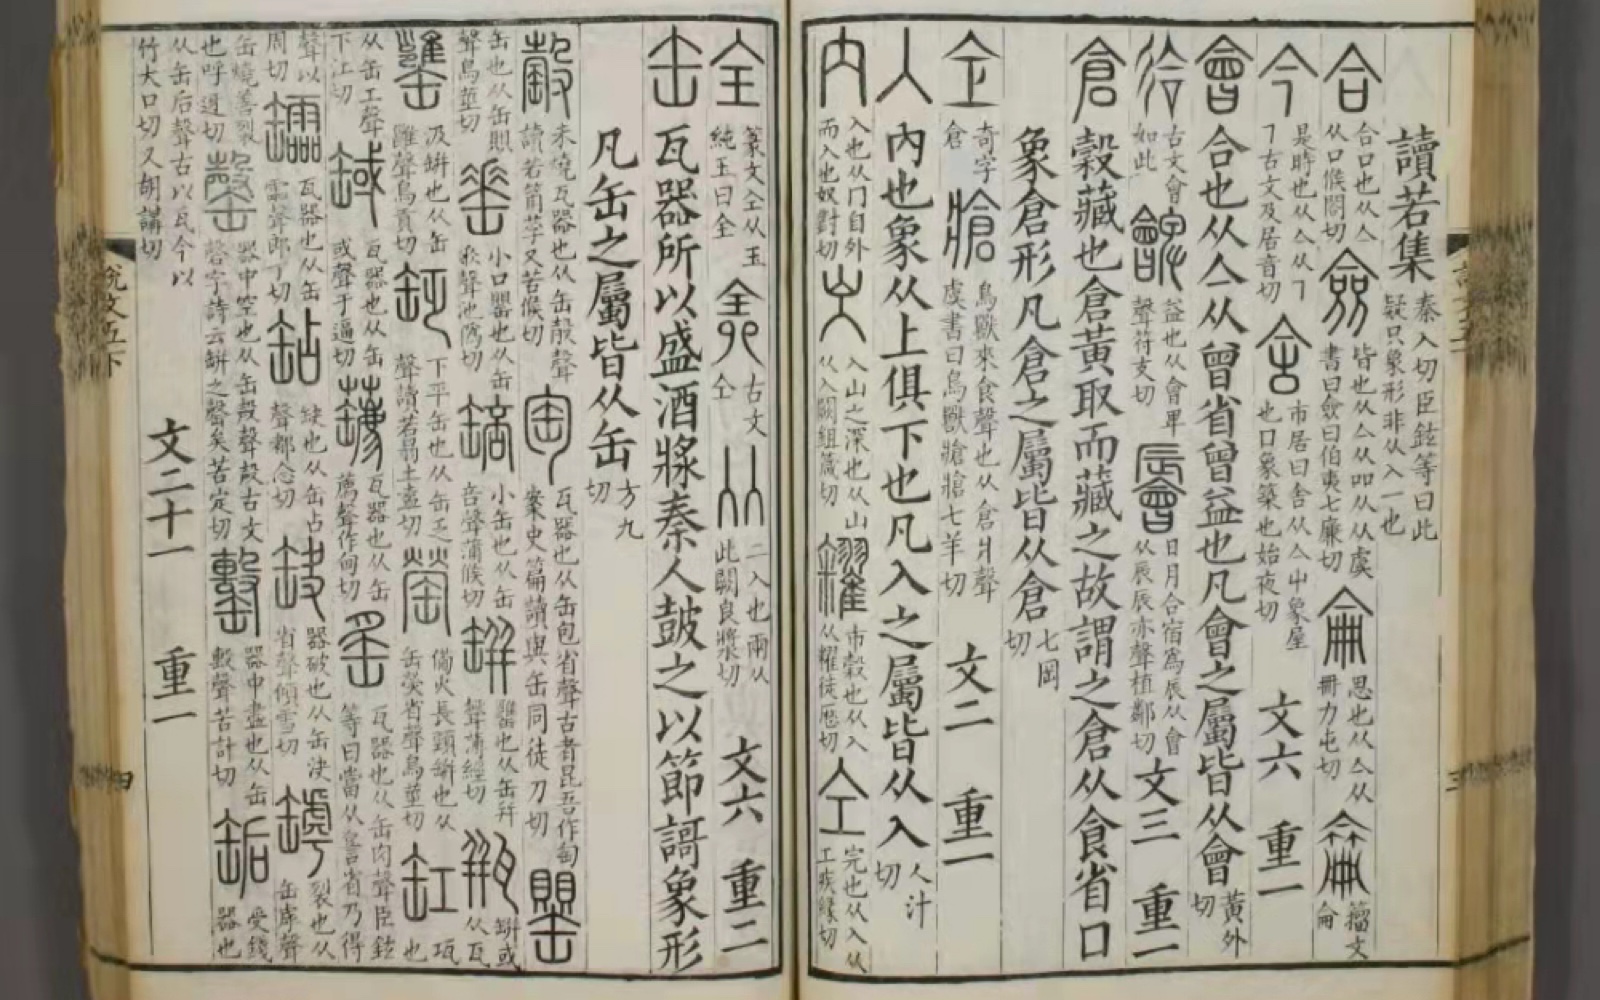 讀若集 秦入切臣鉉等曰此疑只象形非从入一也
合 合口也从亼从口候閤切 僉 皆也从亼从吅从从虞書曰僉曰伯夷七廉切 侖 思也从亼从冊力屯切 籀文侖
今 是時也从亼从㇆㇆古文及居音切 舍 市居曰舍从亼屮象屋也口象築也始夜切 文六 重一
會 合也从亼从曾省曾益也凡會之屬皆从會 黃外切
㣛 古文會如此 朇 益也从會卑聲符支切 日月合宿爲辰从會从辰辰亦聲植鄰切 文三 重一
倉 穀藏也倉黃取而藏之故謂之倉从食省口
象倉形凡倉之屬皆从倉 七岡切
仺 奇字倉 牄 鳥獸來食聲也从倉爿聲虞書曰鳥獸牄牄七羊切 文二 重一
入 內也象从上俱下也凡入之屬皆从入 人汁切
內 入也从冂自外而入也奴對切 㞥 入山之深也从山从入闕鉏箴切 糴 市穀也从入从䊮徒歷切 仝 完也从入从工疾緣切
全 篆文仝从玉純玉曰全 古文仝 㒰 二入也兩从此闕良獎切 文六 重二
缶 瓦器所以盛酒漿秦人鼓之以節謌象形
凡缶之屬皆从缶 方九切
未燒瓦器也从缶㱿聲讀若筩莩又苦候切 匋 瓦器也从缶包省聲古者昆吾作匋案史篇讀與缶同徒刀切 罌
缶也从缶賏聲烏莖切 小口罌也从缶𠂹聲池僞切 小缶也从缶咅聲蒲候切 缾 䍃也从缶幷聲薄經切 瓶 缾或从瓦
罋 汲缾也从缶雝聲烏貢切 下平缶也从缶乏聲讀若㬱土盍切 罃 備火長頸缾也从缶熒省聲烏莖切 缸 瓨也
从缶工聲下江切 瓦器也从缶或聲于逼切 瓦器也从缶薦聲作甸切 䍃 瓦器也从缶肉聲臣鉉等曰當从𧮫省乃得
聲以周切 瓦器也从缶霝聲郎丁切 缺也从缶占聲都念切 缺 器破也从缶決省聲傾雪切 罅 裂也从缶虖聲
缶燒善裂也呼迓切 罄 器中空也从缶殸聲殸古文磬字詩云缾之罄矣苦定切 罊 器中盡也从缶毄聲苦計切 缿 受錢器也
从缶后聲古以瓦今以竹大口切又胡講切 文二十一 重一
說文五下 四